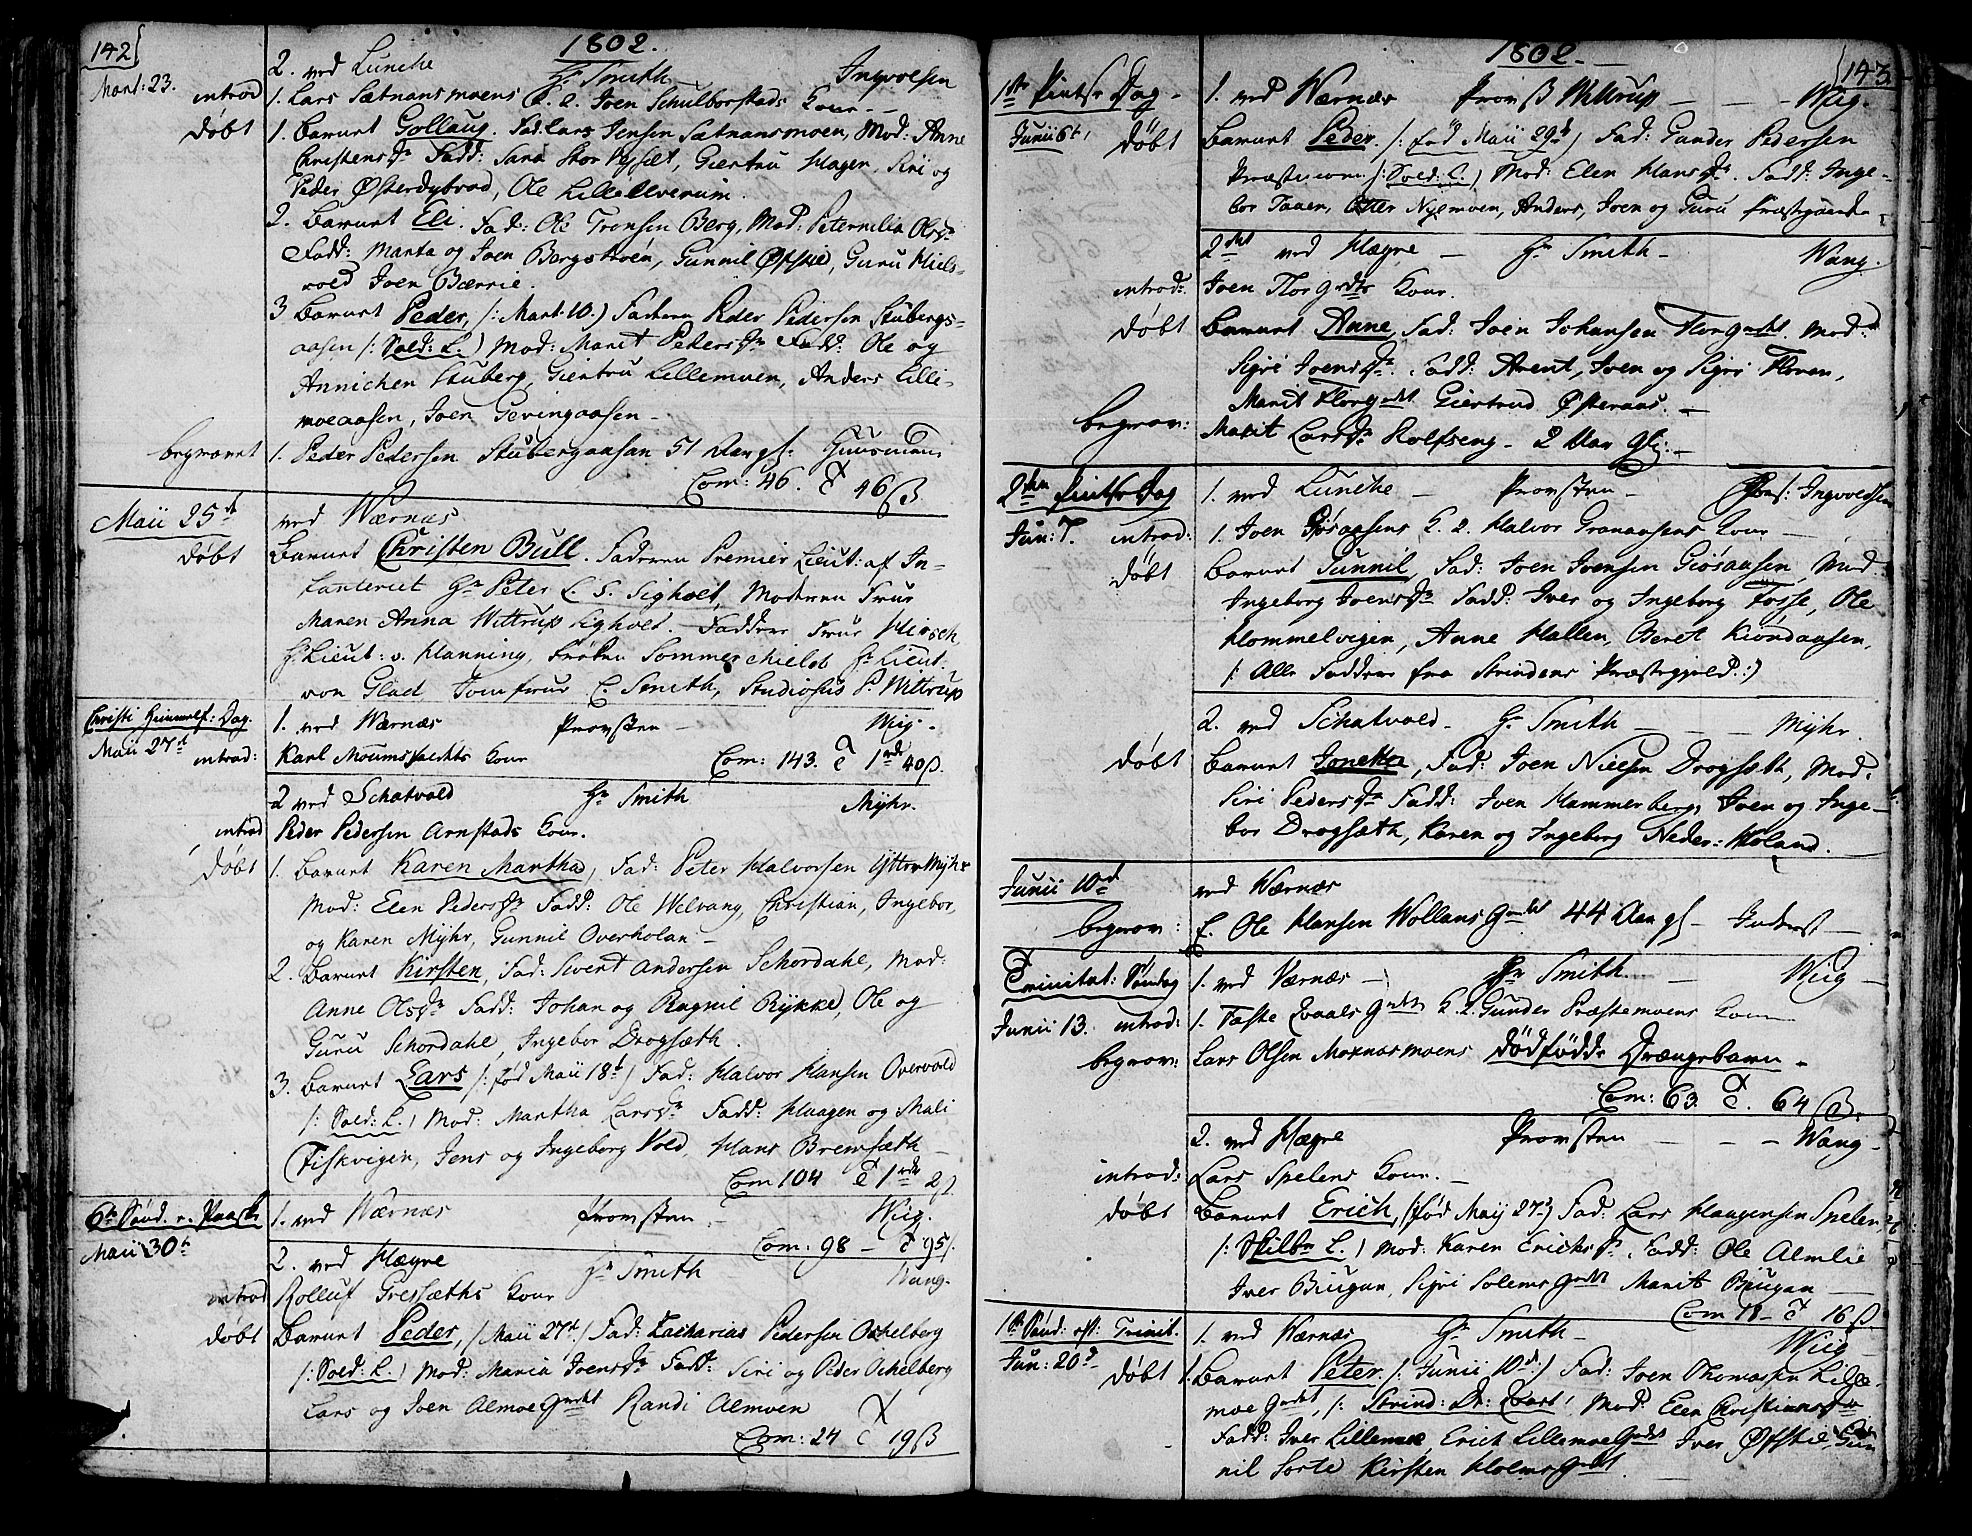 142
1802.
Mart: 23.
2. ved Lunche Hr Smith Ingvolsen
introd 1. Lars Sætnansmoens K. 2. Joen Schulborstads Kone
Døbt 1. Barnet Gollaug. Fad: Lars Jensen Sætnansmoen, Mod: Anne
Christensdr Fadd: Sara Giertru Hagen, Siri og
Peder Østerdybvad, Ole
2. Barnet Eli. Fad: Ole Tronsen Berg, Mod: Peternilla Olsdr
Fadd: Marta og Joen Bergstøen, Gunnil Øfstie, Guru Miels-
vold Joen Bærrie.
3 Barnet Peder, /: Mart. 10.) Faderen Peder Pedersen Stubergs-
aasen /: Sold: L.) Mod: Marit Pedersdr Fadd: Ole og
Annichen Stuberg, Giertru Lillemoen, Anders Lille-
moeaasen, Joen Gevingaasen
begravet 1. Peder Pedersen Stubergaasan 51 Aar gl. Huusmand
Com: 46. T 46 ß
Maii 25d ved Værnæs
døbt Barnet Christen Bull. Faderen Premier Lieut: af In-
fanteriet Hr Peter C. S. Sigholt, Moderen Frue
Maren Anna Wittrup Sigholt. Faddere Frue Hirsch
Hr Lieut: v. Hanning, Frøken Sommerschield Hr Lieut.
von Glad Jomfrue C. Smith, Studiosus P. Wittrup
Christi Himmelf: Dag. 1. ved Værnæs Provsten Wiig.
Maii 27d introd: Karl Moumsvaldets Kone Com: 143. T 1rd 40 ß.
2 ved Schatvold Hr Smith Mÿhr.
introd Peder Pedersen Arnstads Kone.
Døbt 1. Barnet Karen Martha, Fad: Peter Halvorsen Ytter Mÿhr
Mod: Elen Pedersdr Fadd: Ole Welvang, Christian, Ingebor,
og Karen Mÿhr, Gunnil Overholan
2. Barnet Kirsten, Fad: Sivert Andersen Schordahl, Mod:
Anne Olsdr Fadd: Johan og Ragnil Rÿkke, Ole og
Guru Schordahl, Ingebor Drogsæth.
3. Barnet Lars /: fød Maii 18d) Fad: Halvor Hansen Overvold
/: Sold: L.) Mod: Martha Larsdr Fadd: Haagen og Mali
Fiskvigen, Jens og Ingeborg Vold, Hans Bremsæth
Com 104 T 1rd 2 ß
6te Sønd. e. Paaske 1. ved Wærnæs Provsten Wiig.
Com: 98 T 95 ß.
Maii 30d 2. ved Hægre Hr Smith Wang.
introd Rolluf Gressæths Kone
døbt Barnet Peder, /: Maii 27d) Fad: Zacharias Pedersen Ockelberg
/: Sold: L.) Mod: Maria Joensdr Fadd: Siri og Peder Ockelberg
Lars og Joen Almoegrdet Randi Almoen
Com: 24 T 19 ß
1802.
143
1ste Pintse Dag 1. ved Wærnæs Provst Wittrup Wiig.
Junii 6t døbt Barnet Peder. /: fød Maii 29d) Fad: Gunder Pedersen
Præstemoen /: Sold: L.) Mod: Elen Hansdr. Fadd: Inge-
bor Nyemoen, Anders, Joen og Guru Præstgaarden
2det ved Hægre Hr Smith Wang.
introd: Joen Florgrdets Kone.
døbt Barnet Anne, Fad: Joen Johansen Florgrdet. Mod:
Sigri Joensdr. Fadd: Arent, Joen og Sigri Floren,
Marit Florgrdet Giertrud Østeraas.
begrav: Marit Larsdr Rolfseng 2 Uger gl.
2den Pintse Dag 1. ved Lunche Provsten Ingvoldsen
Jun: 7. introd: 1. Joen Giøsaasens K. 2. Halvor Granaasens Kone
døbt Barnet Gunnil, Fad: Joen Joensen Giøsaasen Mod:
Ingeborg Joensdr Fadd: Iver og Ingeborg Fosse, Ole
Hommelvigen, Anne Hallen, Beret Kiøndaasen,
/: Alle Faddere fra Strindens Præstegjeld :)
2. ved Schatvold Hr Smith Mÿhr.
døbt Barnet Jonetta, Fad: Joen Nielsen Drogsæth, Mod:
Siri Pedersdr Fadd: Iver Hammerberg, Iver og Inge-
bor Drogsæth, Karen og Ingeborg Neder=Holand.
Junii 10d ved Wærnæs
begrav: Ole Hansen Wollans grdet 44 Aar gl Inderst
Trinitat: Søndag 1. ved Værnæs Hr Smith. Wiig
Junii 13. introd: 1. Qvaals grdet K. 2. Gunder Præstemoens Kone
begrav: Lars Olsen Moxnæsmoens dødfødde Drængebarn
Com: 63. T. 64 ß.
2. ved Hægre Provsten Wang
introd: Lars Spelens Kone.
døbt Barnet Erich, /: fød Maij 27d) Fad: Lars Haagensen Spelen
/: Spilbr L.) Mod: Karen Erichsdr. Fadd: Ole Almlie
Iver Brugan, Sigri Solemsgrdet Marit Brugan
Com 18 T 16 ß.
1ste Sønd: eft: Trinit. 1. ved Wærnæs Hr Smith Wiig
Jun: 20d døbt 1. Barnet Peter. /: Junii 10d.) Fad: Joen Thomassen Lille-
moegrdet, /: Strind: Dr: Mod: Elen Christiansdr
Fadd: Iver Lillemoe, Erich Lillemoegrdet Iver Øfstie, Gun
nil Sorte Kirsten Holmsgrdet